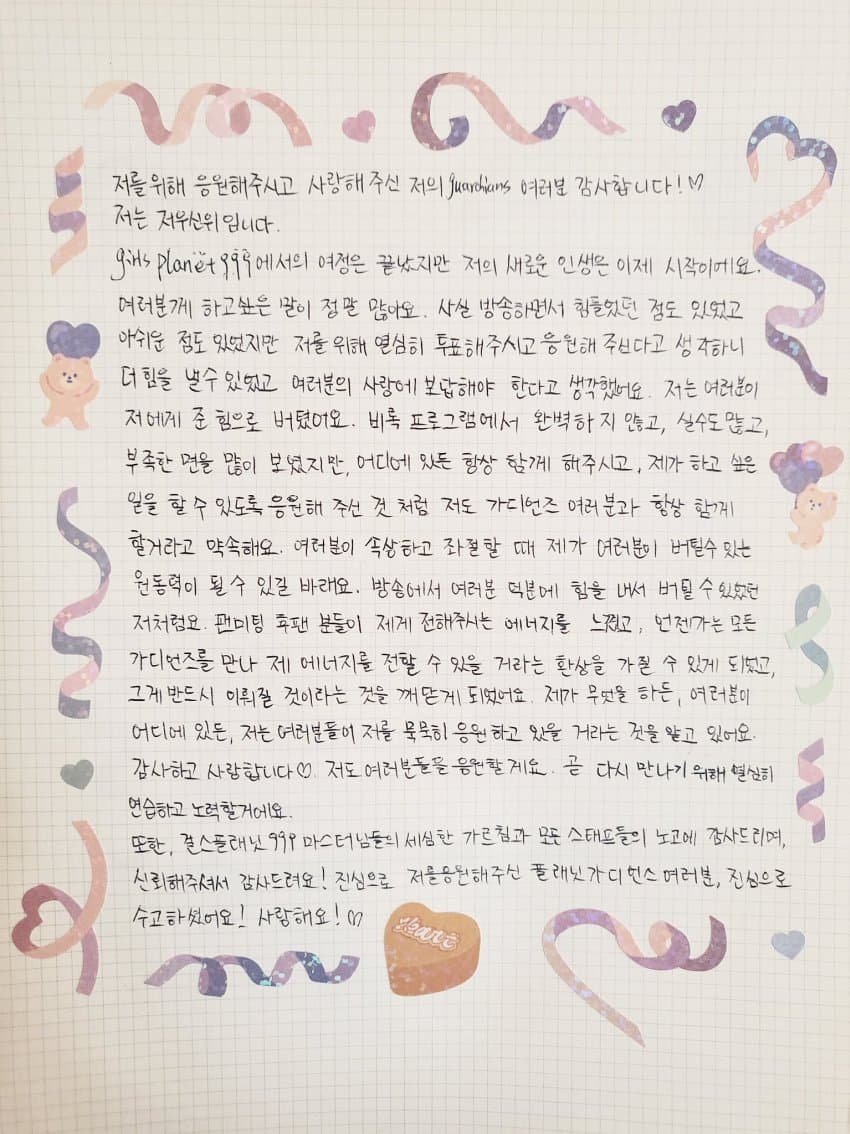 저를 위해 응원해주시고 사랑해 주신 저의 guardians 여러분 감사합니다! ♡
저는 저우신위입니다.
girls planet 999에서의 여정은 끝났지만 저의 새로운 인생은 이제 시작이에요.
여러분게 하고싶은 말이 정말 많아요. 사실 방송하면서 힘들었던 점도 있었고
아쉬운 점도 있었지만 저를 위해 열심히 투표해주시고 응원해 주신다고 생각하니
더 힘을 낼 수 있었고 여러분의 사랑에 보답해야 한다고 생각했어요. 저는 여러분이
저에게 준 힘으로 버텼어요. 비록 프로그램에서 완벽하지 않고, 실수도 많고,
부족한 면을 많이 보였지만, 어디에 있든 항상 함께 해주시고, 제가 하고 싶은
일을 할 수 있도록 응원해 주신 것 처럼 저도 가디언즈 여러분과 항상 함게
할거라고 약속해요. 여러분이 속상하고 좌절할 때 제가 여러분이 버틸수 있는
원동력이 될 수 있길 바래요. 방송에서 여러분 덕분에 힘을 내서 버틸 수 있었던
저처럼요. 팬미팅 후팬 분들이 제게 전해주시는 에너지를 느꼈고, 언젠가는 모든
가디언즈를 만나 제 에너지를 전할 수 있을 거라는 환상을 가질 수 있게 되었고,
그게 반드시 이뤄질 것이라는 것을 깨닫게 되었어요. 제가 무엇을 하든, 여러분이
어디에 있든, 저는 여러분들이 저를 묵묵히 응원하고 있을 거라는 것을 알고 있어요.
감사하고 사랑합니다♡. 저도 여러분들을 응원할게요. 곧 다시 만나기 위해 열심히
연습하고 노력할거에요.
또한, 걸스플래닛 999 마스터님들의 세심한 가르침과 모든 스태프들의 노고에 감사드리며,
신뢰해주셔서 감사드려요! 진심으로 저를응원해주신 플래닛가디언스 여러분, 진심으로
수고하셨어요! 사랑해요! ♡
Heart